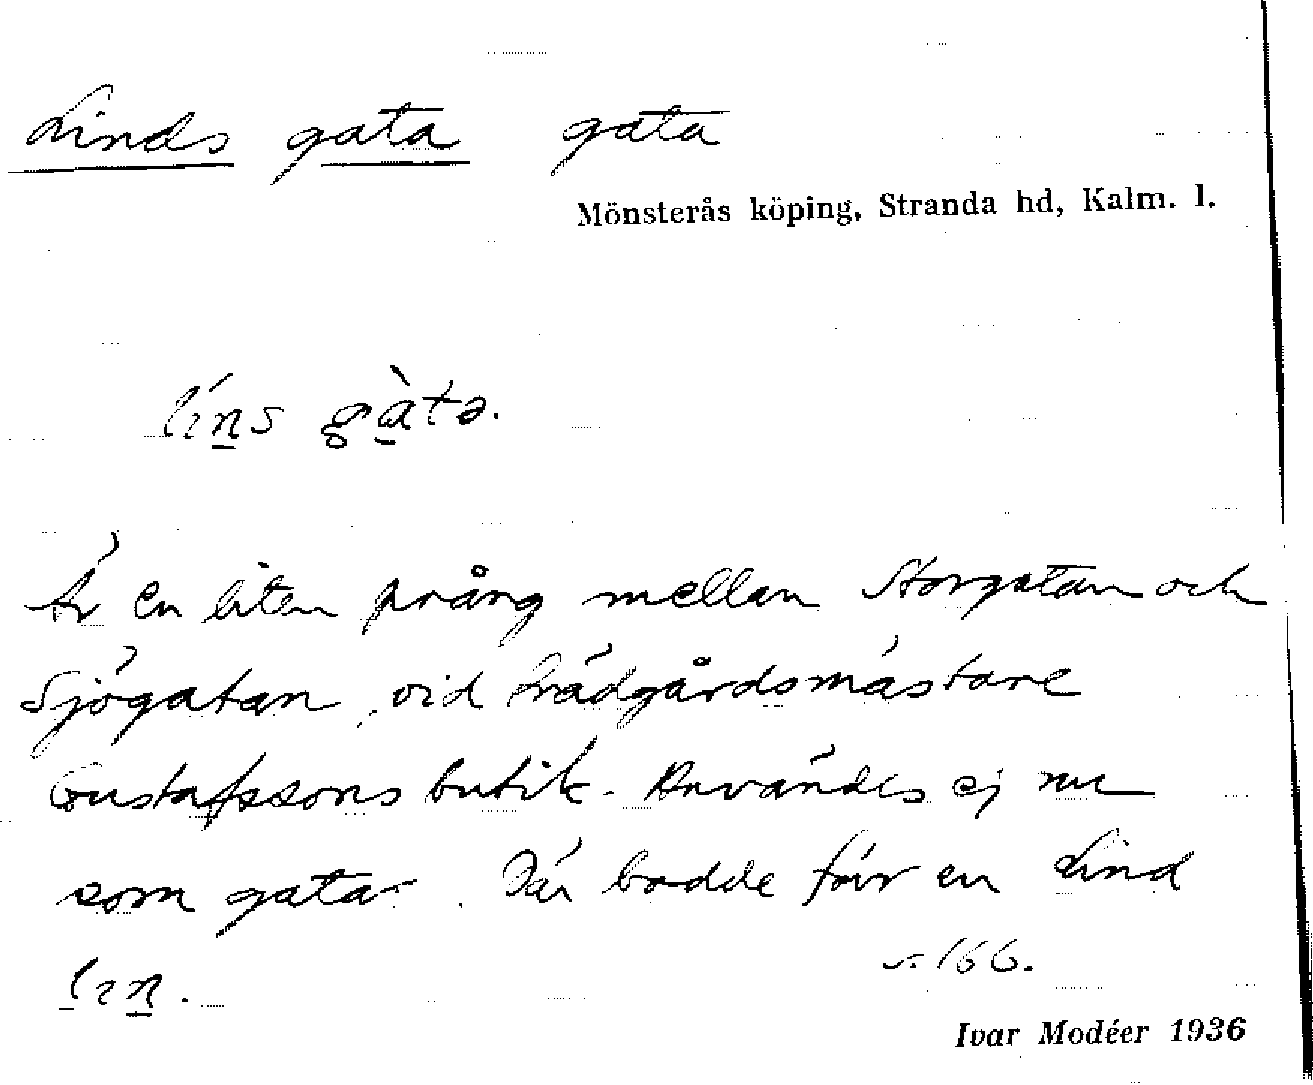 Linds gata gata
Mönsterås köping, Stranda hd, Kalm. l.
líns gàtə.
Är en liten prång mellan Storgatan och
Sjögatan, vid trädgårdsmästare
Gustafssons butik. Användes ej nu
som gata. Där bodde förr en Lind
lın.
s. 166.
Ivar Modéer 1936